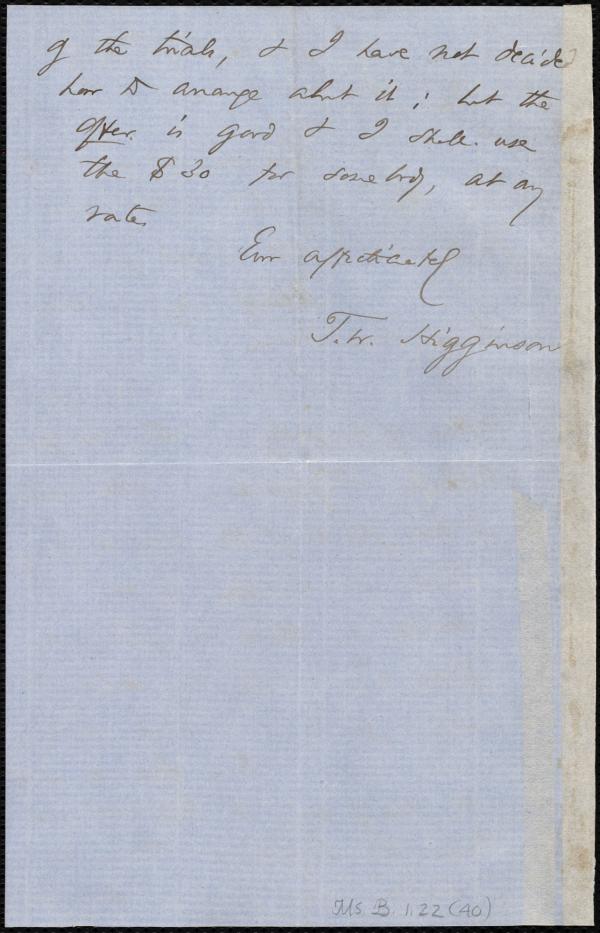 of the trials, & I have not decided
how to arrange about it; but the
offer is good & I shall use
the $30 for somebody, at any
rate
Ever affectionately
T. W. Higginson
Ms. B. 1.22 (40)